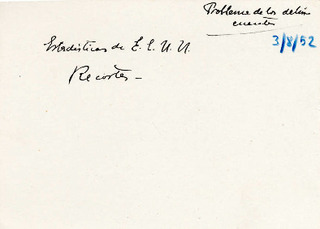 Problema de los delin
cuentes
3/8/52
Estadísticas de E. E. U. U.
Recortes -